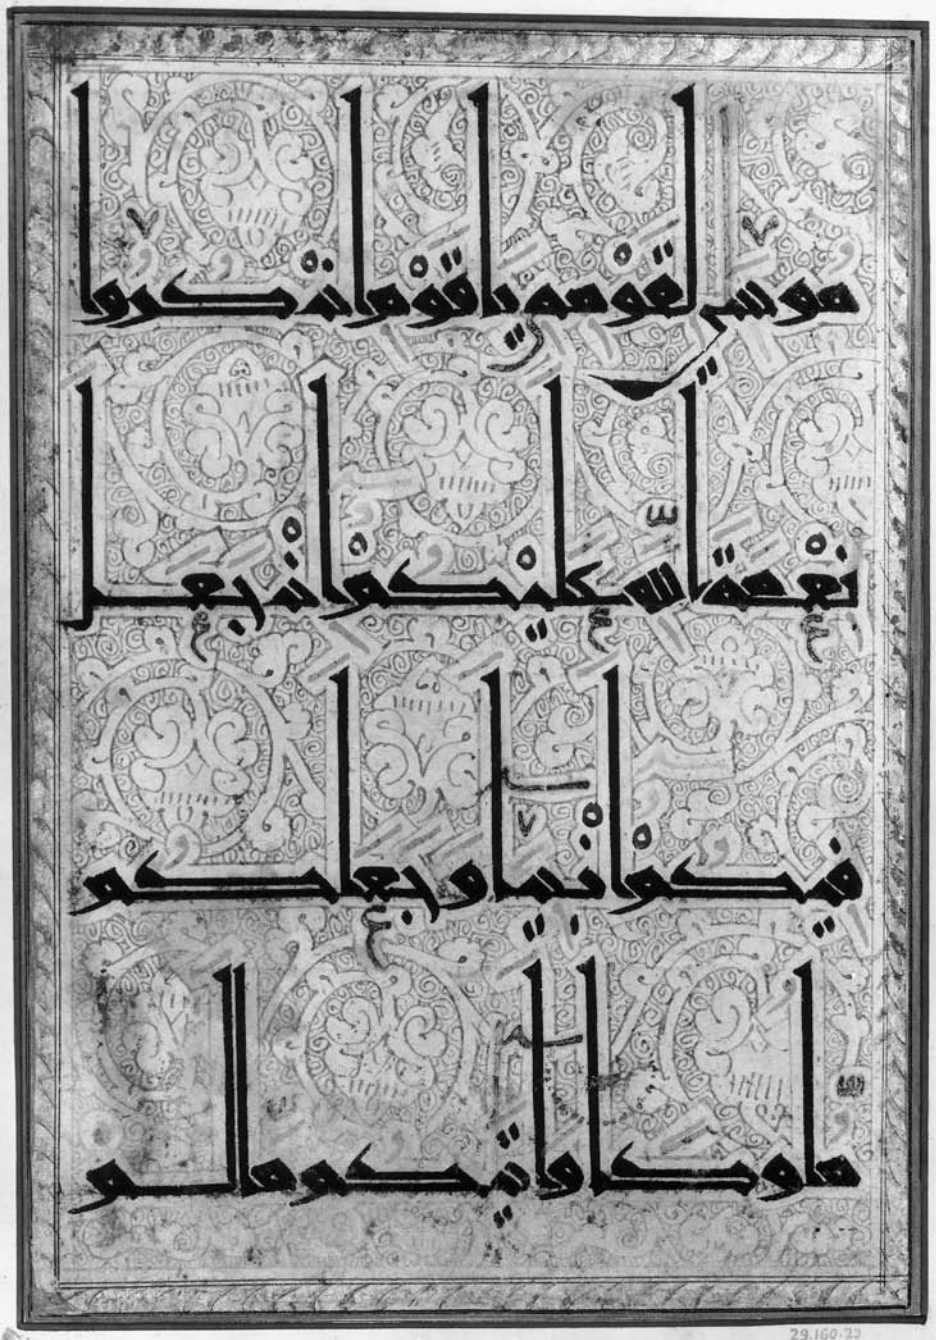 مُوسَى لِقَوْمِهِ يَاقَوْمِ اذْكُرُوا
نِعْمَةَ اللَّهِ عَلَيْكُمْ إِذْ جَعَلَ
فِيكُمْ أَنْبِيَاءَ وَجَعَلَكُمْ
مُلُوكًا وَآتَيكُمْ مَا لَمْ
29.160.23